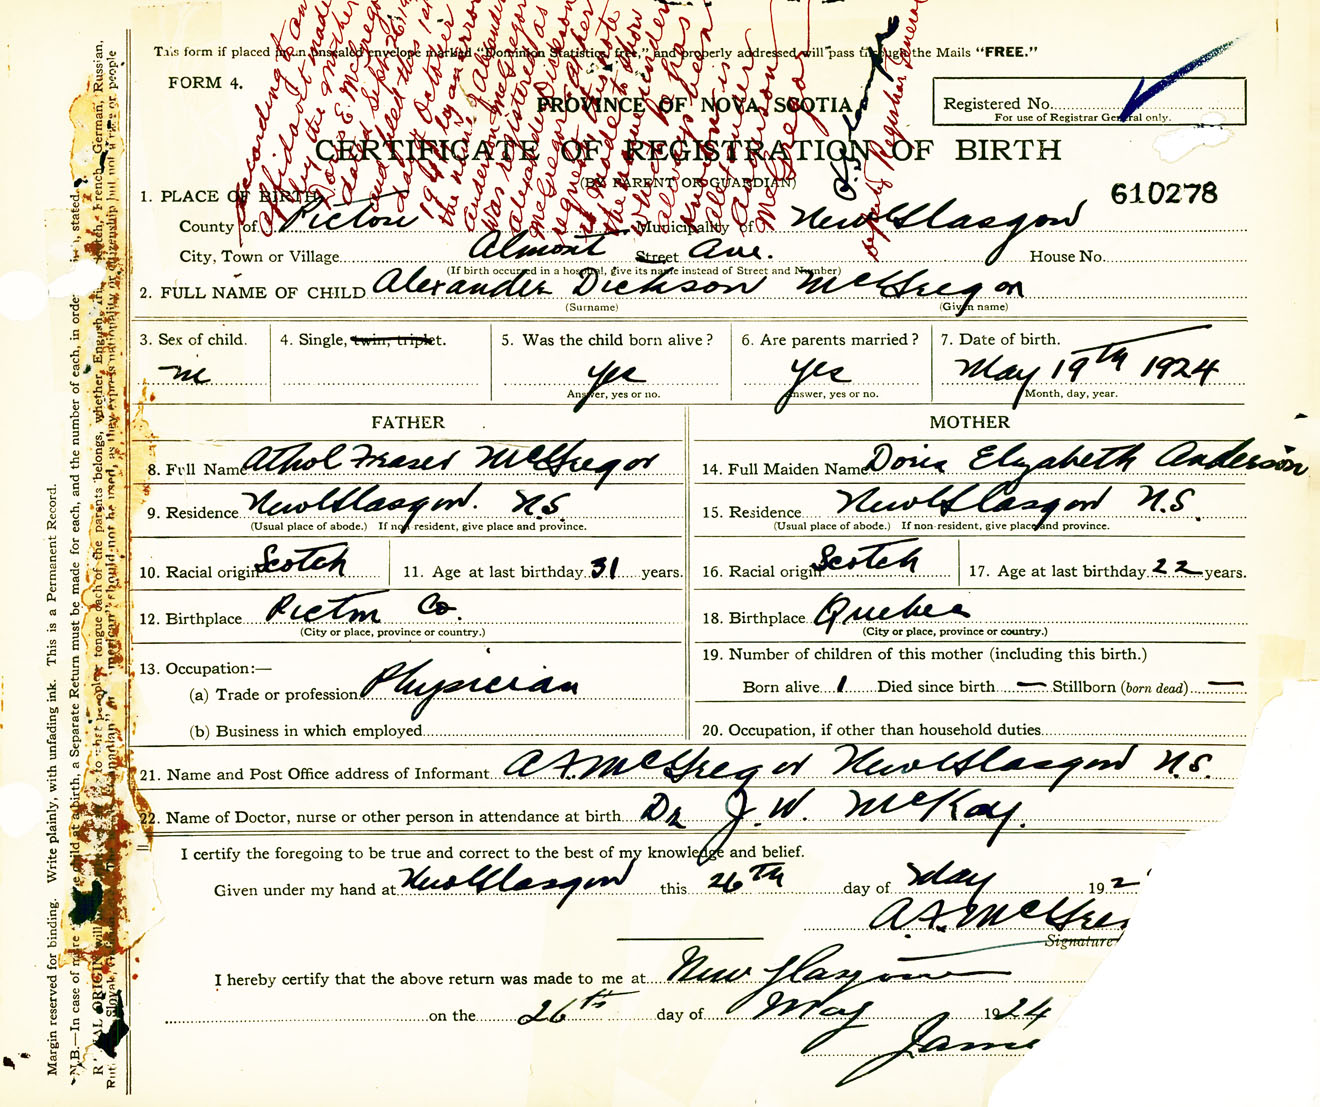 This form if placed in an unsealed envelope marked "Dominion Statistics, free," and properly addressed will pass through the Mails "FREE."
FORM 4.
PROVINCE OF NOVA SCOTIA
Registered No.
For use of Registrar General only.
CERTIFICATE OF REGISTRATION OF BIRTH
(BY PARENT OR GUARDIAN)
610278
1. PLACE OF BIRTH
County of Pictou Municipality of New Glasgow
City, Town or Village Almont Street Ave. House No.
(If birth occurred in a hospital, give its name instead of Street and Number)
2. FULL NAME OF CHILD Alexander Dickson McGregor
(Surname) (Given name)
3. Sex of child. 4. Single, twin, triplet. 5. Was the child born alive? 6. Are parents married? 7. Date of birth.
m yes yes May 19th 1924
Answer, yes or no. Answer, yes or no. Month, day, year.
FATHER MOTHER
8. Full Name Athol Fraser McGregor 14. Full Maiden Name Doris Elizabeth Anderson
9. Residence New Glasgow. N.S. 15. Residence New Glasgow N.S.
(Usual place of abode.) If non-resident, give place and province. (Usual place of abode.) If non-resident, give place and province.
10. Racial origin Scotch 11. Age at last birthday 31 years. 16. Racial origin Scotch 17. Age at last birthday 22 years.
12. Birthplace Pictou Co. 18. Birthplace Quebec
(City or place, province or country.) (City or place, province or country.)
13. Occupation:— 19. Number of children of this mother (including this birth.)
(a) Trade or profession Physician Born alive 1 Died since birth — Stillborn (born dead) —
(b) Business in which employed 20. Occupation, if other than household duties
21. Name and Post Office address of Informant A.F. McGregor New Glasgow N.S.
22. Name of Doctor, nurse or other person in attendance at birth Dr J. W. McKay.
I certify the foregoing to be true and correct to the best of my knowledge and belief.
Given under my hand at New Glasgow this 26th day of May 192
A.F. McGre
Signature
I hereby certify that the above return was made to me at New Glasgow
on the 26th day of May 1924
Jame
According to an
affidavit made
by the mother
Doris E. McGregor
dated Sept. 26
and filed this
October
1941 by an error
the name Alexander
Anderson McGregor
was registered as
Alexander Dickson
McGregor
request
is made to show
the name
which he has
always been
known
Alexander
Anderson
McGregor
Deputy Registrar General
Margin reserved for binding. Write plainly, with unfading ink. This is a Permanent Record.
N.B.—In case of more child at a birth, a Separate Return must be made for each, and the number of each, in order stated.